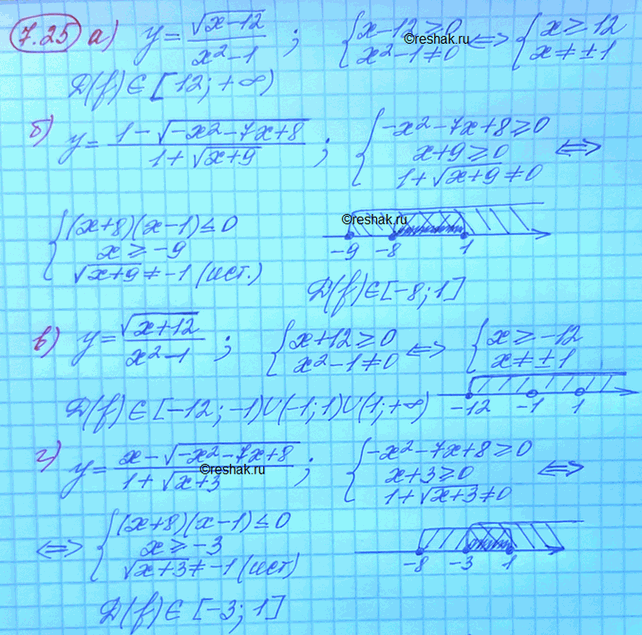 7.25 а) y = \frac{\sqrt{x-12}}{x²-1} ; { x-12 ≥ 0, x²-1 ≠ 0 ⇔ { x ≥ 12, x ≠ ±1
©reshak.ru
D(f) ∈ [12; +∞)
б) y = \frac{1-\sqrt{-x²-7x+8}}{1+\sqrt{x+9}} ; { -x²-7x+8 ≥ 0, x+9 ≥ 0, 1+\sqrt{x+9} ≠ 0 ⇔
{ (x+8)(x-1) ≤ 0, x ≥ -9, \sqrt{x+9} ≠ -1 (ист.)
©reshak.ru
-9 -8 1
D(f) ∈ [-8; 1]
в) y = \frac{\sqrt{x+12}}{x²-1} ; { x+12 ≥ 0, x²-1 ≠ 0 ⇔ { x ≥ -12, x ≠ ±1
D(f) ∈ [-12; -1) ∪ (-1; 1) ∪ (1; +∞)
-12 -1 1
г) y = \frac{x-\sqrt{-x²-7x+8}}{1+\sqrt{x+3}} ; { -x²-7x+8 ≥ 0, x+3 ≥ 0, 1+\sqrt{x+3} ≠ 0 ⇔
©reshak.ru
⇔ { (x+8)(x-1) ≤ 0, x ≥ -3, \sqrt{x+3} ≠ -1 (ист)
-8 -3 1
D(f) ∈ [-3; 1]